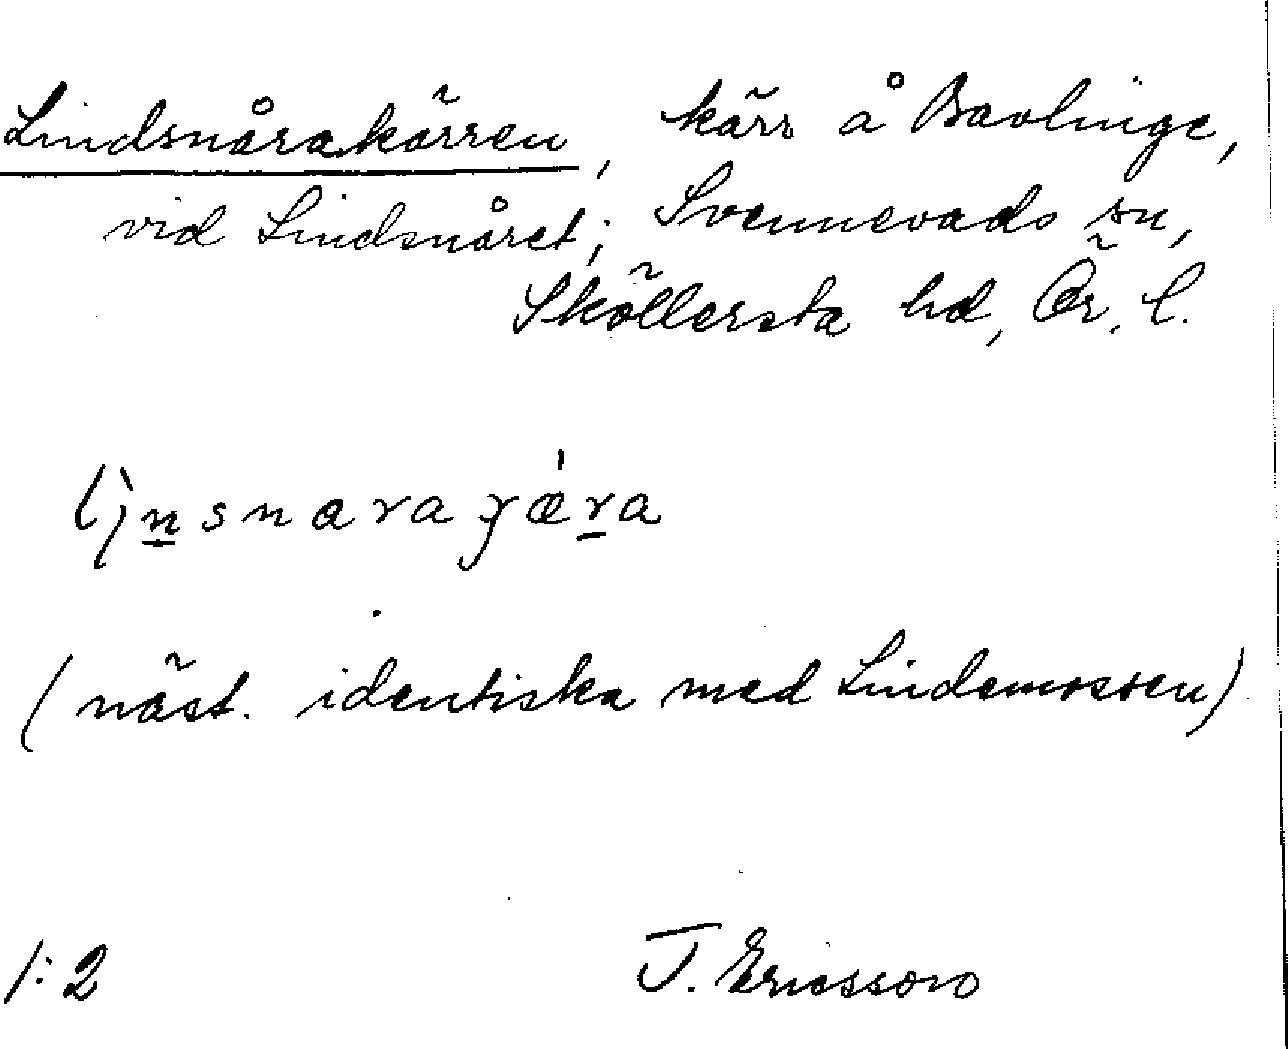 Lindsnårakärren, kärr å Bavlinge,
vid Lindsnåret; Svennevads sn,
Sköllersta hd, Ör. l.
(näst. identiska med Lindemossen)
1:2 T. Ericsson